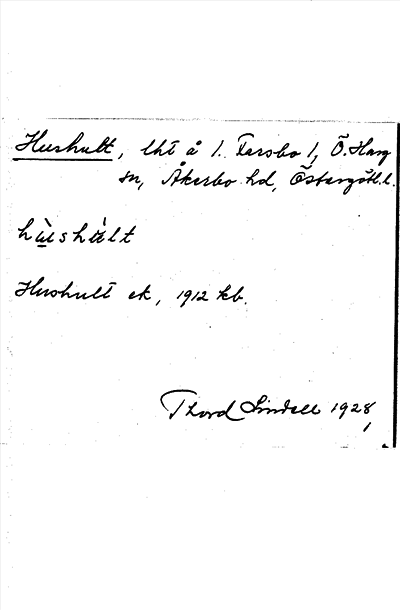 Hushult, lht å 1. Farsbo 1, Ö. Harg
sn, Åkerbo hd, Östergötl. l.
hùshùlt
Hushult ek, 1912 kb.
Thord Lindell 1928